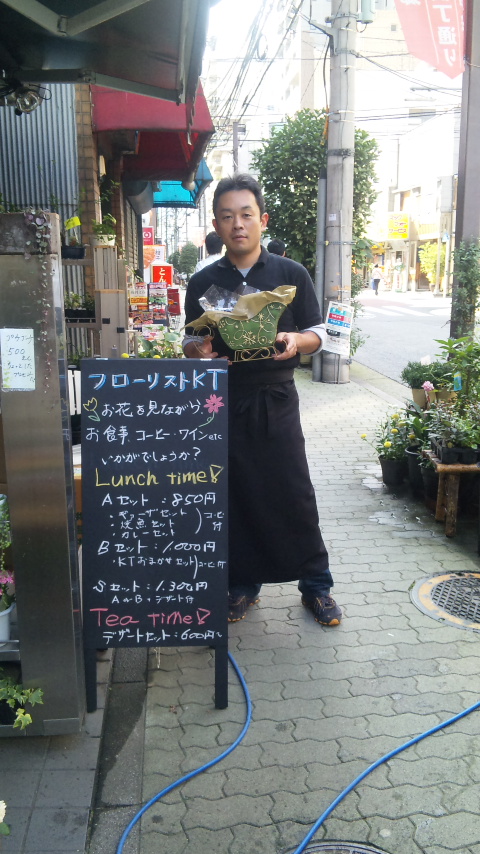 丁通り
フローリストKT
お花を見ながら、
お食事、コーヒー・ワインetc
いかがでしょうか?
Lunch time!
Aセット:850円
・ピッツァセット
・焼魚セット
・カレーセット
コーヒー付
Bセット:1000円
・KTおまかせセット
コーヒー付
Sセット:1,300円
A or B + デザート付
Tea time!
デザートセット:600円〜
500